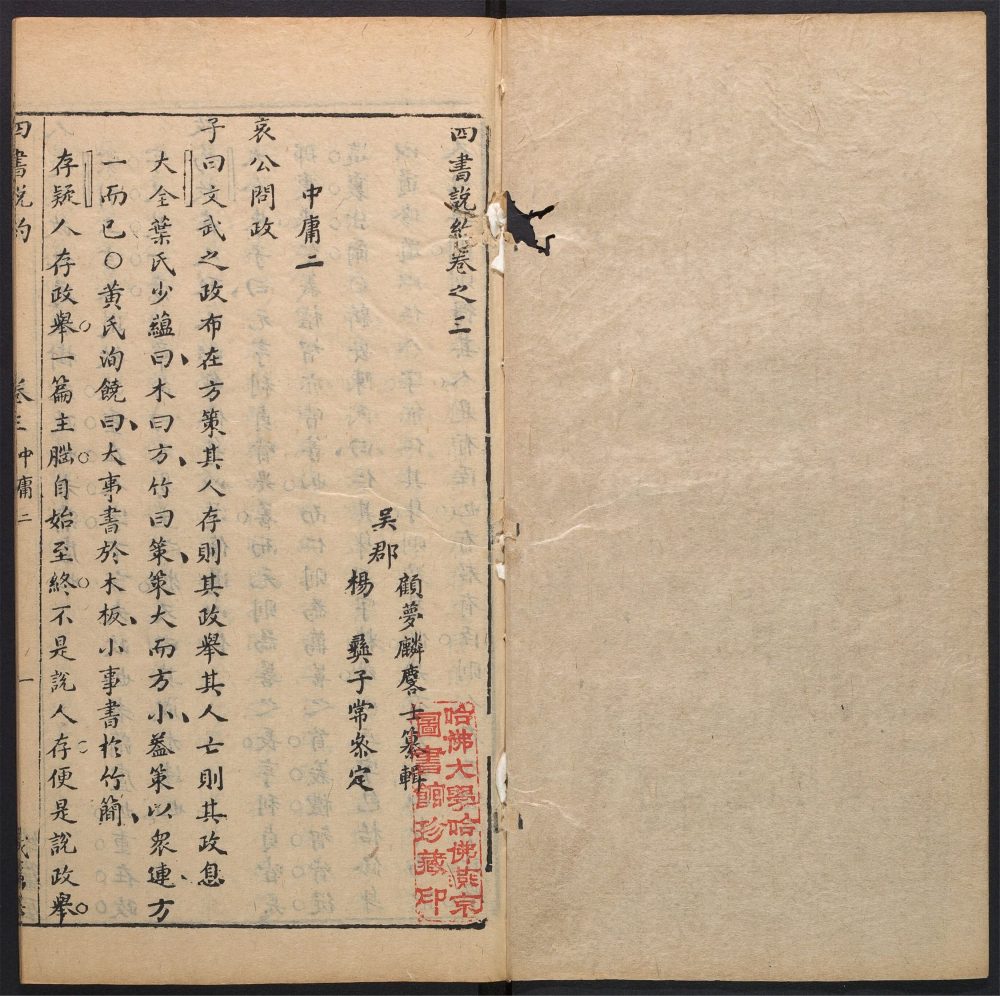 四書說約卷之三
顧夢麟麐士纂輯
吳郡
楊彝子常參定
中庸二
哀公問政
子曰文武之政布在方策其人存則其政舉其人亡則其政息
大全葉氏少蘊曰木曰方竹曰策策大而方小葢策以衆連方
一而已○黃氏洵饒曰大事書於木板小事書於竹簡
存疑人存政舉一篇主腦自始至終不是說人存便是說政舉
四書說約
卷三中庸二
一
哈佛大學哈佛燕京
圖書館珍藏印